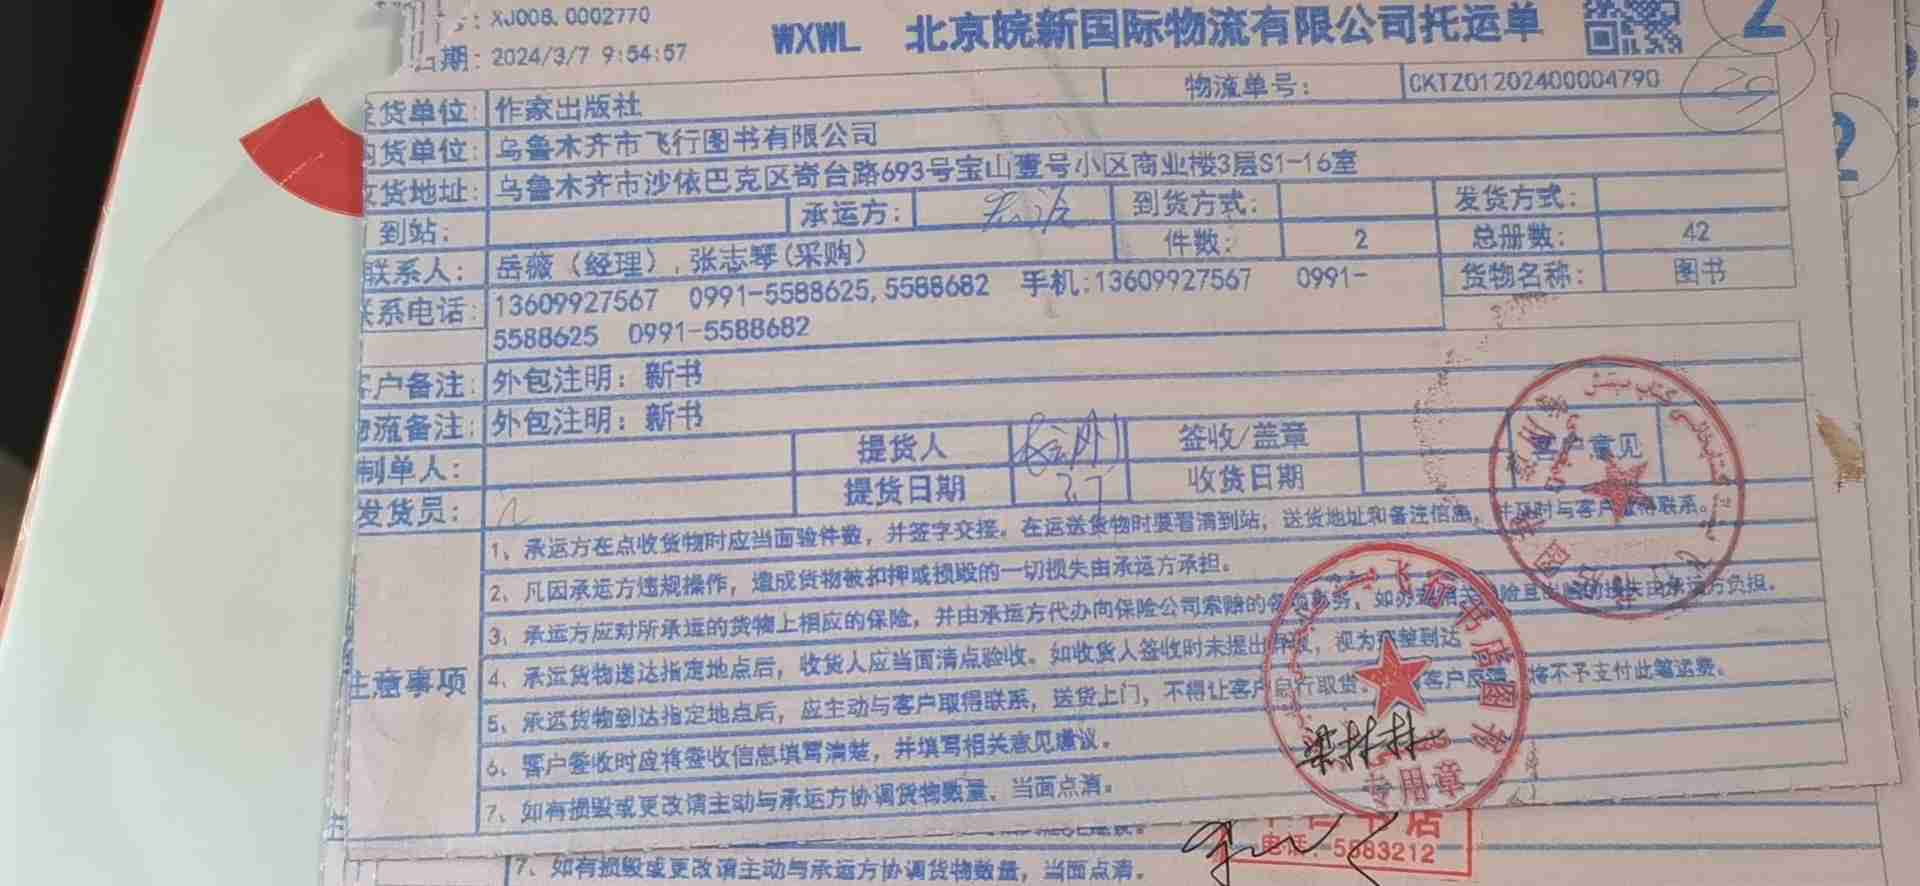 ：XJ008.0002770
期：2024/3/7 9:54:57
WXWL 北京皖新国际物流有限公司托运单
2
29
物流单号：
CKTZ01202400004790
货单位：
作家出版社
货单位：
乌鲁木齐市飞行图书有限公司
货地址：
乌鲁木齐市沙依巴克区奇台路693号宝山壹号小区商业楼3层S1-16室
到站：
承运方：
到货方式：
发货方式：
件数：
2
总册数：
42
联系人：
岳薇（经理）,张志琴(采购)
货物名称：
图书
系电话：
13609927567 0991-5588625,5588682 手机:13609927567 0991-
5588625 0991-5588682
户备注：
外包注明：新书
流备注：
外包注明：新书
制单人：
提货人
签收/盖章
客户意见
发货员：
提货日期
3.7
收货日期
注意事项
1、承运方在点收货物时应当面验件数，并签字交接。在运送货物时要看清到站，送货地址和备注信息，并及时与客户取得联系。
2、凡因承运方违规操作，造成货物被扣押或损毁的一切损失由承运方承担。
3、承运方应对所承运的货物上相应的保险，并由承运方代办向保险公司索赔的各项事务，如办理相关保险且出险的损失由承运方负担。
4、承运货物送达指定地点后，收货人应当面清点验收。如收货人签收时未提出异议，视为完整到达
5、承运货物到达指定地点后，应主动与客户取得联系，送货上门，不得让客户自行取货。客户将不予支付此笔运费。
6、客户签收时应将签收信息填写清楚，并填写相关意见建议。
7、如有损毁或更改请主动与承运方协调货物数量，当面点清。
飞行书店图书
专用章
梁林林
7、如有损毁或更改请主动与承运方协调货物数量，当面点清。
书店
电话：5583212
2